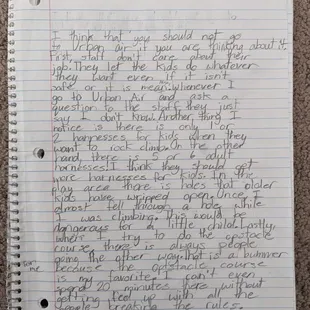 I think that you should not go
to Urban air if you are thinking about it.
First, staff don't care about their
job. They let the kids do whatever
they want even if it isn't
safe or it is mean. Whenever I
go to Urban Air and ask a
question to the staff they just
say I don't know. Another thing I
notice is there is only 1 or
2 harnesses for kids when they
want to rock climb. On the other
hand, there is 5 or 6 adult
harnesses. I think they should get
more harnesses for kids. In the
play area there is holes that older
kids have wripped open. Once I
almost fell through a hole while
I was climbing. This would be
dangerous for a little child. Lastly,
when I try to do the obstacle
course, there is always people
going the other way. that is a bummer
because the obstacle course
is my favorite. I can't even
spend 20 minutes here without
getting fed up with all the
people breaking the rules.